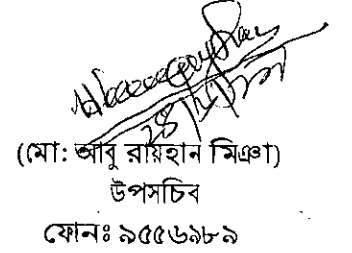 (মো: আবু রায়হান মিঞা)
উপসচিব
ফোনঃ ৯৫৫৬৯৮৯